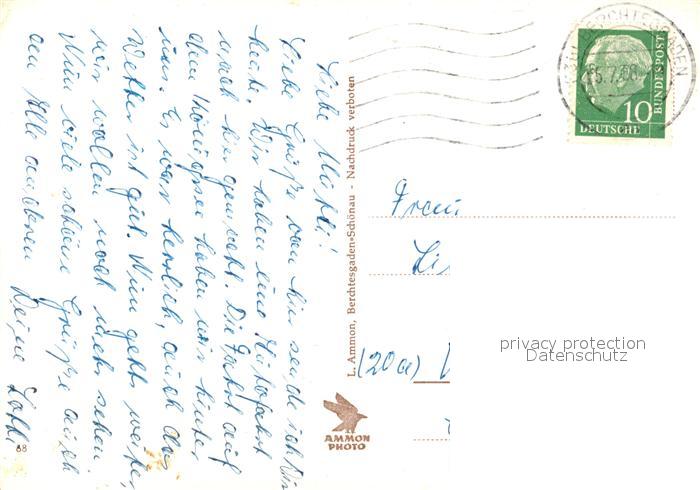 Liebe Mutti!
Viele Grüße von hier sende ich Dir
heute. Wir haben eine Autofahrt
nach hier gemacht. Die Fahrt auf
dem Königssee haben wir hinter
uns. Es war herrlich, auch das
Wetter ist gut. Nun geht's weiter,
wir wollen noch mehr sehen.
Nun viele schöne Grüße auch
an alle anderen Deine Lotte
68
L. Ammon, Berchtesgaden-Schönau - Nachdruck verboten
AMMON
PHOTO
BERCHTESGADEN
10
DEUTSCHE
BUNDESPOST
Frau
(20a)
privacy protection
Datenschutz